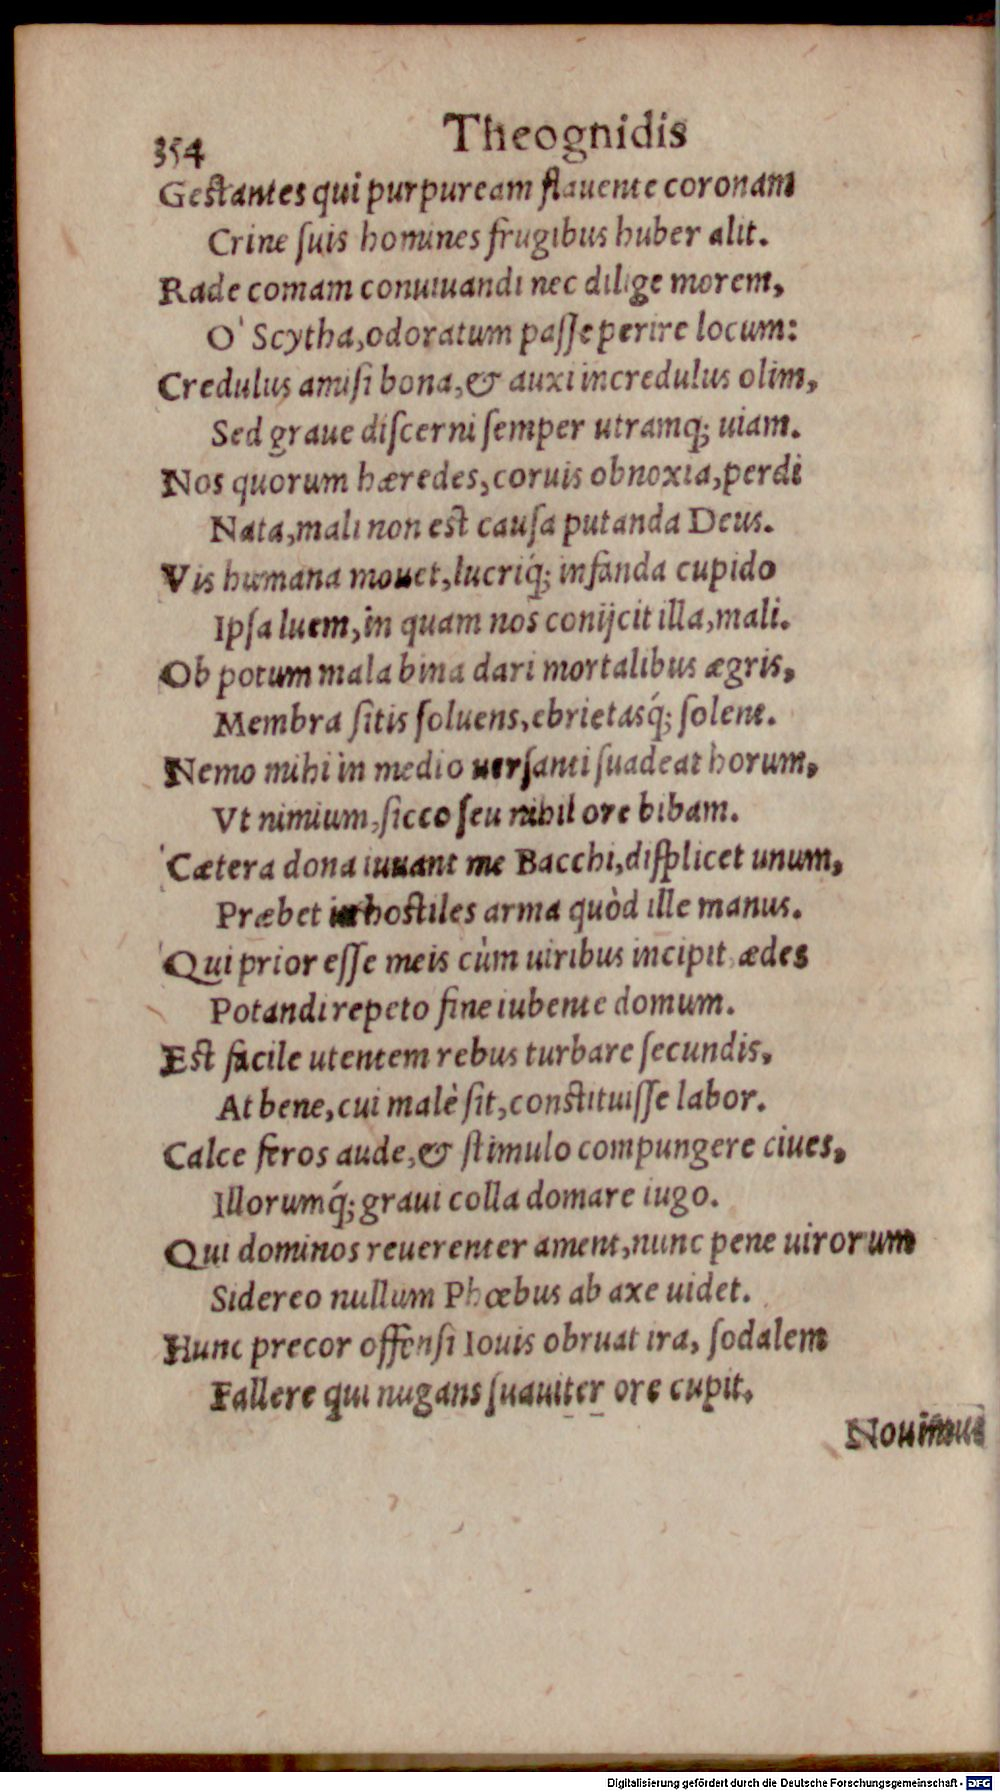 354 Theognidis
Gestantes qui purpuream flauente coronam
Crine ſuis homines frugibus huber alit.
Rade comam conuiuandi nec dilige morem,
O' Scytha, odoratum paſſe perire locum:
Credulus amiſi bona, & auxi incredulus olim,
Sed graue diſcerni ſemper utramq; uiam.
Nos quorum hæredes, coruis obnoxia, perdi
Nata, mali non est cauſa putanda Deus.
Vis humana mouet, lucriq́; infanda cupido
Ipſa luem, in quam nos conijcit illa, mali.
Ob potum mala bina dari mortalibus ægris,
Membra ſitis ſoluens, ebrietasq́; ſolent.
Nemo mihi in medio uerſanti ſuadeat horum,
Vt nimium, ſicco ſeu nihil ore bibam.
Cætera dona iuuant me Bacchi, diſplicet unum,
Præbet in hostiles arma quòd ille manus.
Qui prior eſſe meis cùm uiribus incipit, ædes
Potandi repeto fine iubente domum.
Est facile utentem rebus turbare ſecundis,
At bene, cui malè ſit, constituiſſe labor.
Calce feros aude, & ſtimulo compungere ciues,
Illorumq́; graui colla domare iugo.
Qui dominos reuerenter ament, nunc pene uirorum
Sidereo nullum Phœbus ab axe uidet.
Hunc precor offenſi Iouis obruat ira, ſodalem
Fallere qui nugans ſuauiter ore cupit.
Nouimus
Digitalisierung gefördert durch die Deutsche Forschungsgemeinschaft - DFG